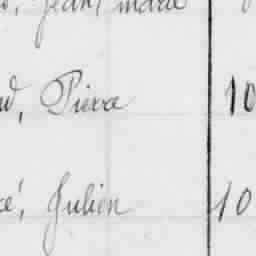 Jean, marie
Pierre 10
Julien 10